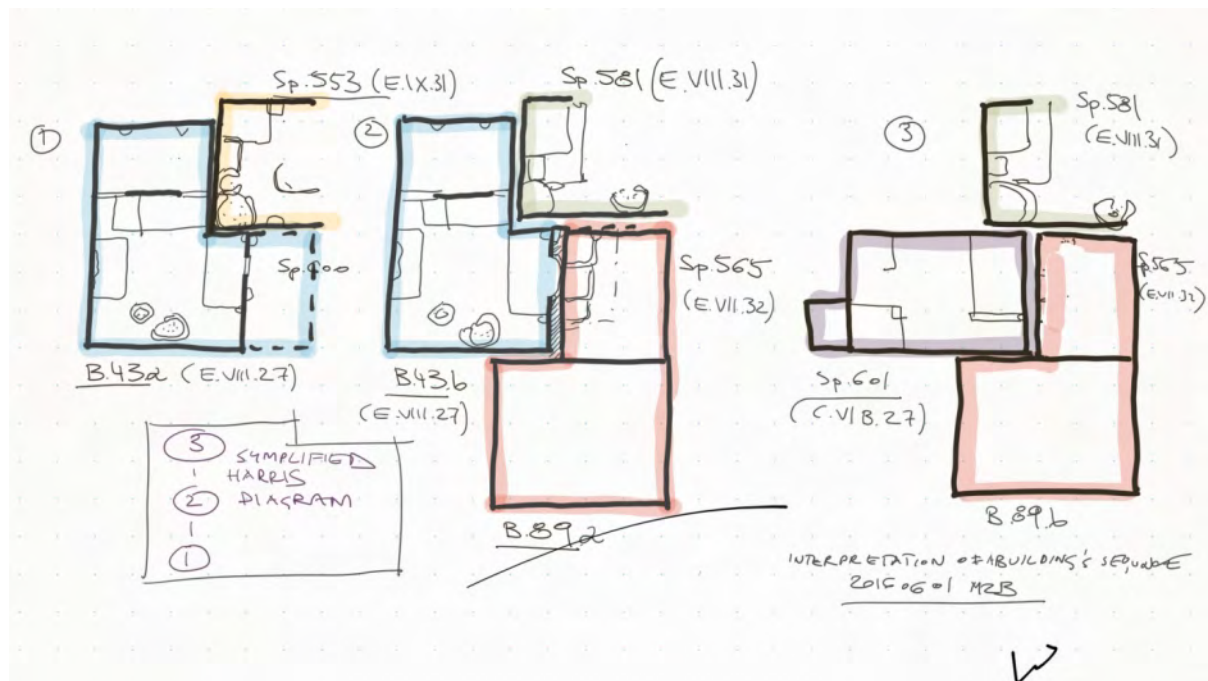 ①
Sp.553 (E.IX.31)
Sp.600
B.43a (E.VIII.27)
②
Sp.581 (E.VIII.31)
Sp.565
(E.VII.32)
B.43.b
(E.VIII.27)
B.89a
③
Sp.581
(E.VIII.31)
Sp.565
(E.VII.32)
Sp.601
(C.VIB.27)
B.89.b
3
SYMPLIFIED
HARRIS
2 DIAGRAM
1
INTERPRETATION OF A BUILDING'S SEQUENCE
MZB